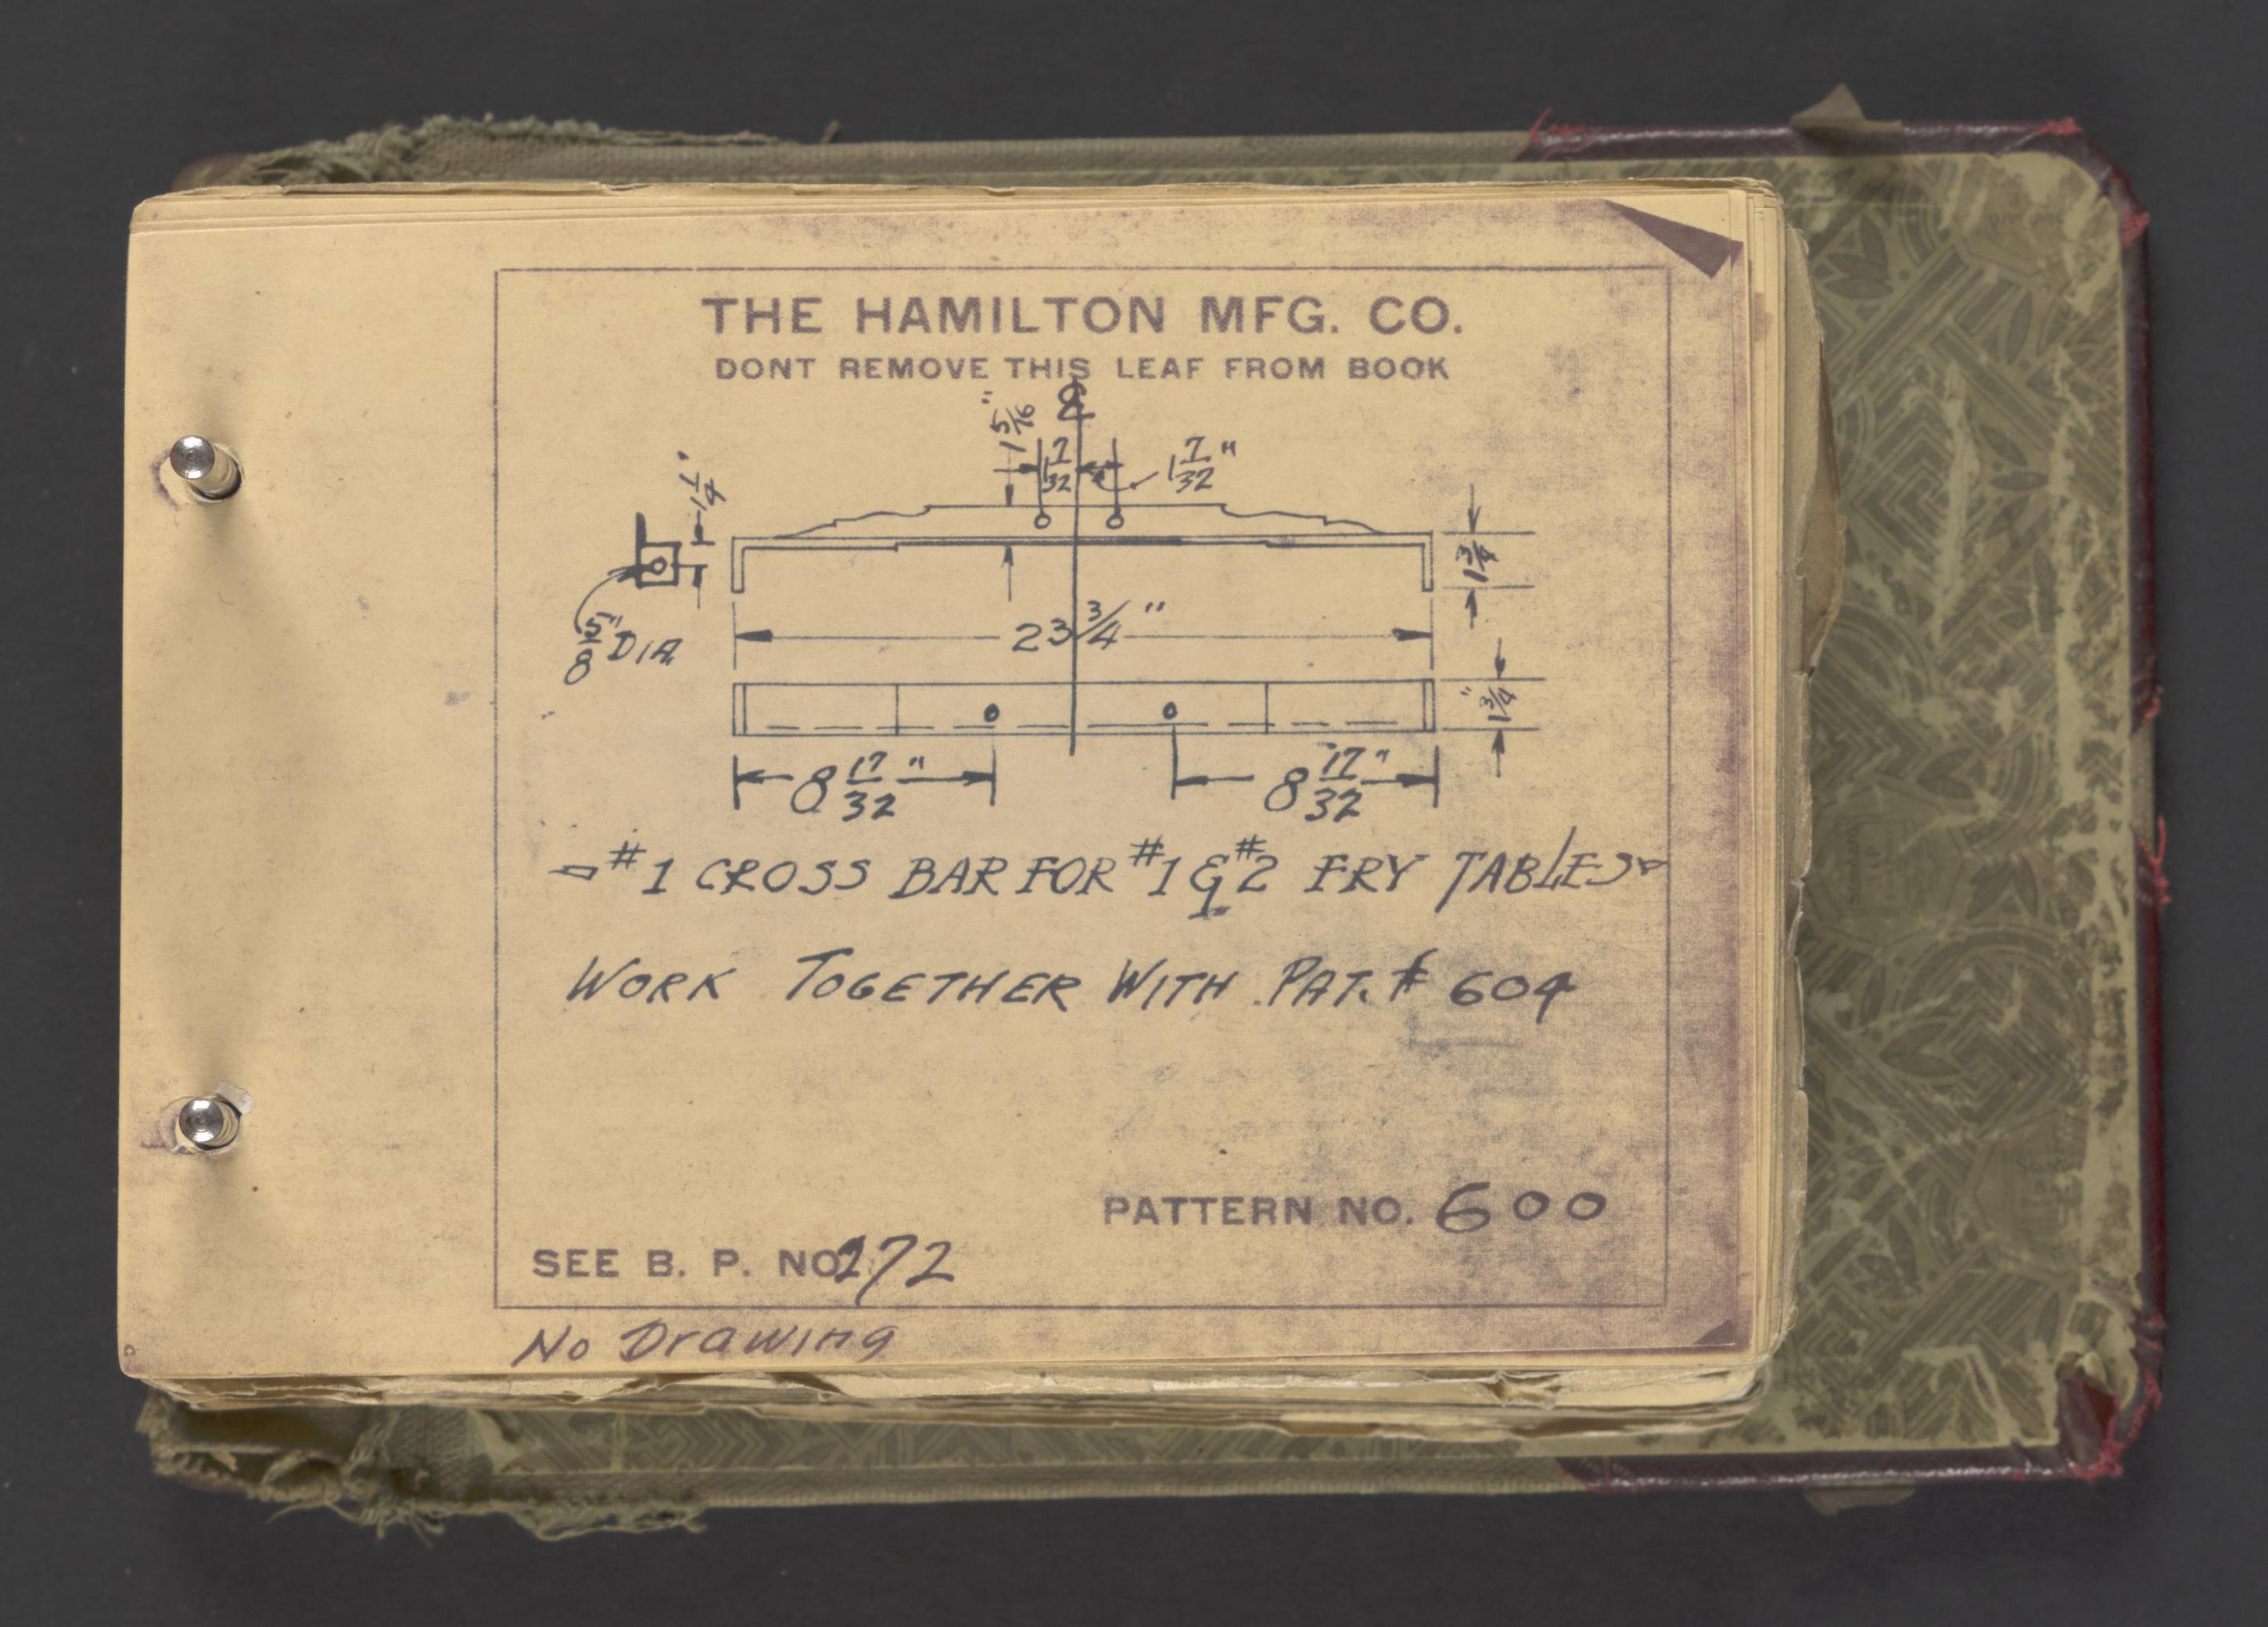 THE HAMILTON MFG. CO.
DONT REMOVE THIS LEAF FROM BOOK
℄
1 5/16"
1 7/32
1 7/32"
1/4"
5/8" DIA
1 3/4
23 3/4"
1 3/4"
8 17/32"
8 17/32"
#1 CROSS BAR FOR #1 & #2 FRY TABLES
WORK TOGETHER WITH PAT. # 604
PATTERN NO. 600
SEE B. P. NO. 272
No Drawing